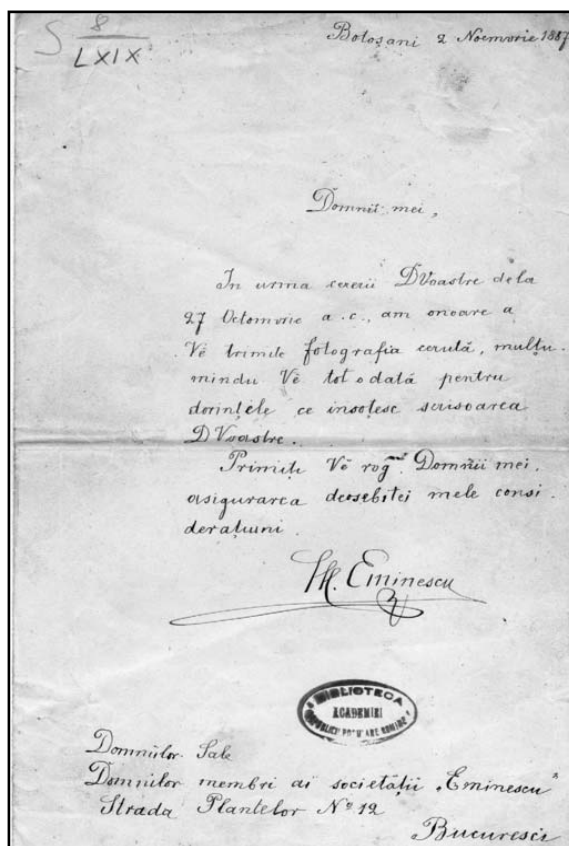 S 8
LXIX
Botoșani 2 Noemvrie 1887
Domnii mei,
In urma cererii DVoastre de la
27 Octomvrie a.c., am onoare a
Vĕ trimite fotografia cerută, mulțu-
mindu Vĕ tot odată pentru
dorințele ce însoțesc scrisoarea
DVoastre.
Primiți Vĕ rog Domnii mei,
asigurarea deosebitei mele consi
derațiuni.
M. Eminescu
BIBLIOTECA
ACADEMIEI
REPUBLICII POPULARE ROMÎNE
Domniilor Sale
Domnilor membri ai societății „Eminescu"
Strada Plantelor No 12
Bucuresci